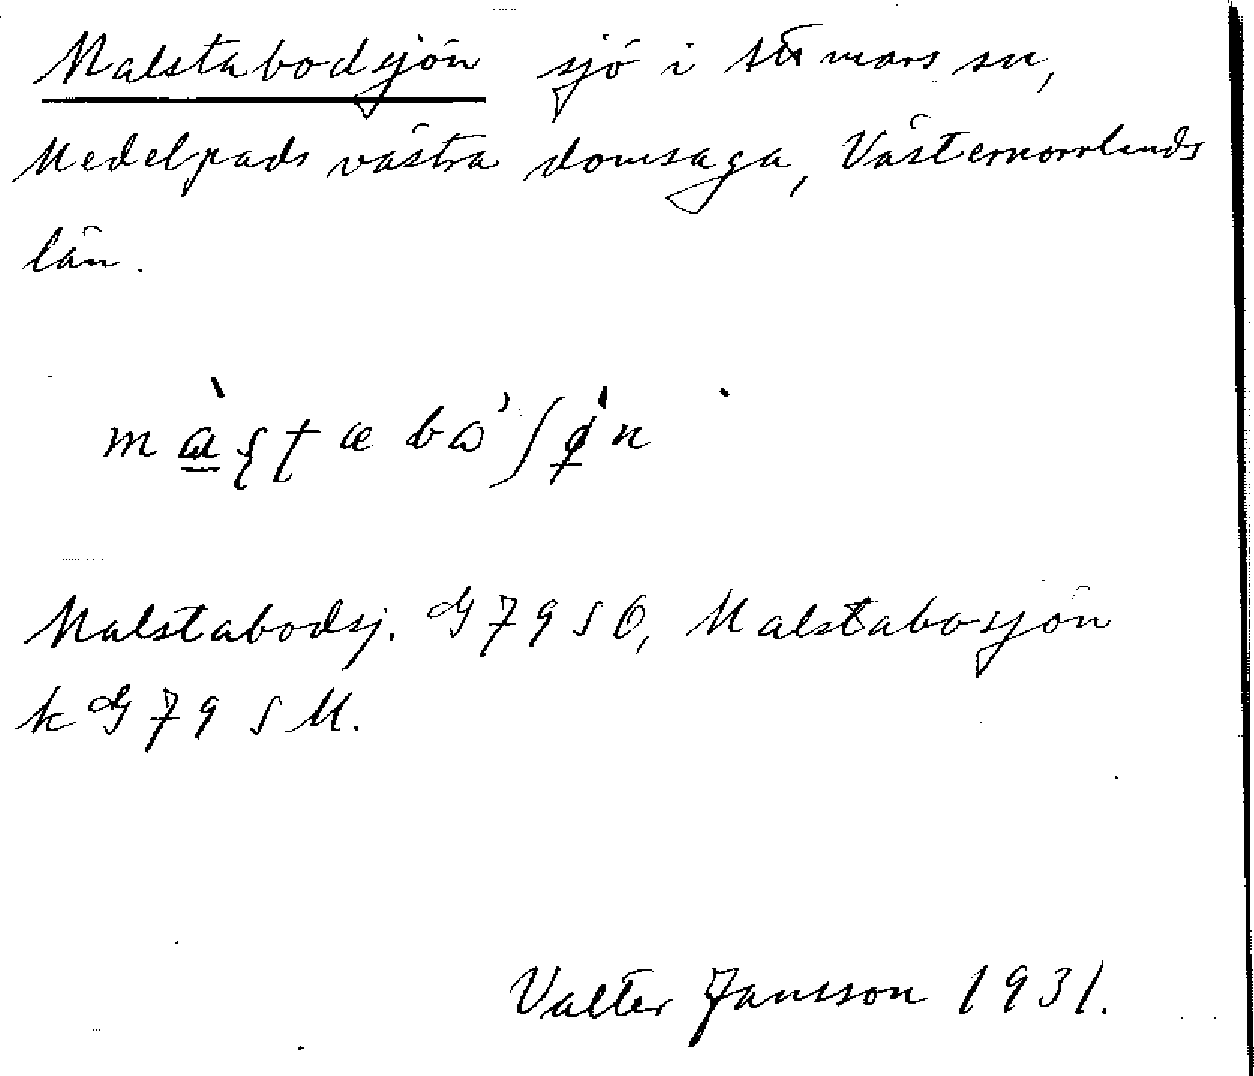 Malstabodsjön sjö i Stömars sn,
Medelpads västra domsaga, Västernorrlands
län.
Malstabodsj. G 79 SO, Malstabosjön
k G 79 S M.
Valter Jansson 1931.